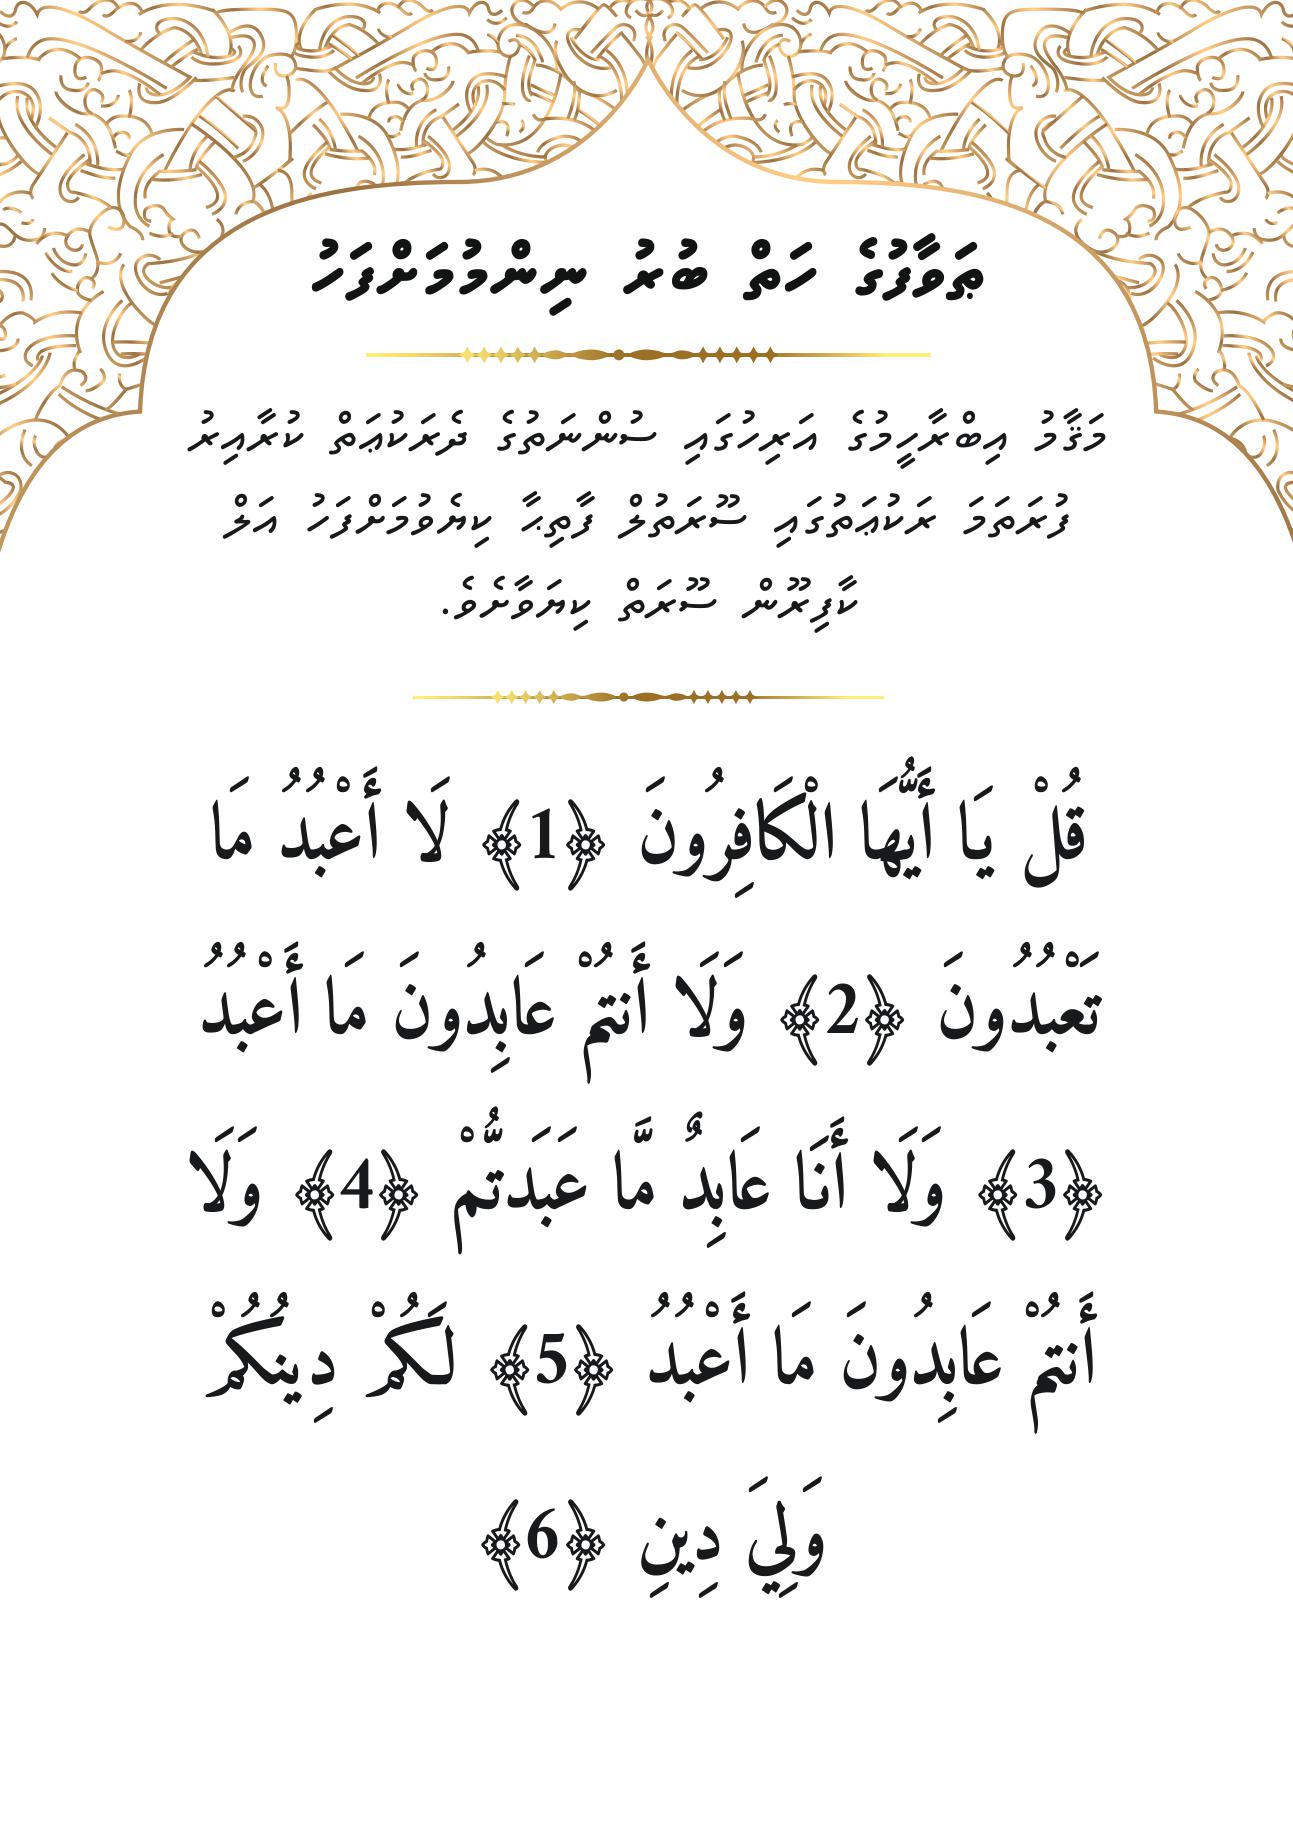 ޠަވާފުގެ ހަތް ބުރު ނިންމުމަށްފަހު
މަޤާމު އިބްރާހީމުގެ އަރިހުގައި ސުންނަތުގެ ދެރަކުޢަތް ކުރާއިރު
ފުރަތަމަ ރަކުޢަތުގައި ސޫރަތުލް ފާތިޙާ ކިޔެވުމަށްފަހު އަލް
ކާފިރޫން ސޫރަތް ކިޔަވާށެވެ.
قُلْ يَا أَيُّهَا الْكَافِرُونَ ﴿1﴾ لَا أَعْبُدُ مَا
تَعْبُدُونَ ﴿2﴾ وَلَا أَنتُمْ عَابِدُونَ مَا أَعْبُدُ
﴿3﴾ وَلَا أَنَا عَابِدٌ مَّا عَبَدتُّمْ ﴿4﴾ وَلَا
أَنتُمْ عَابِدُونَ مَا أَعْبُدُ ﴿5﴾ لَكُمْ دِينُكُمْ
وَلِيَ دِينِ ﴿6﴾